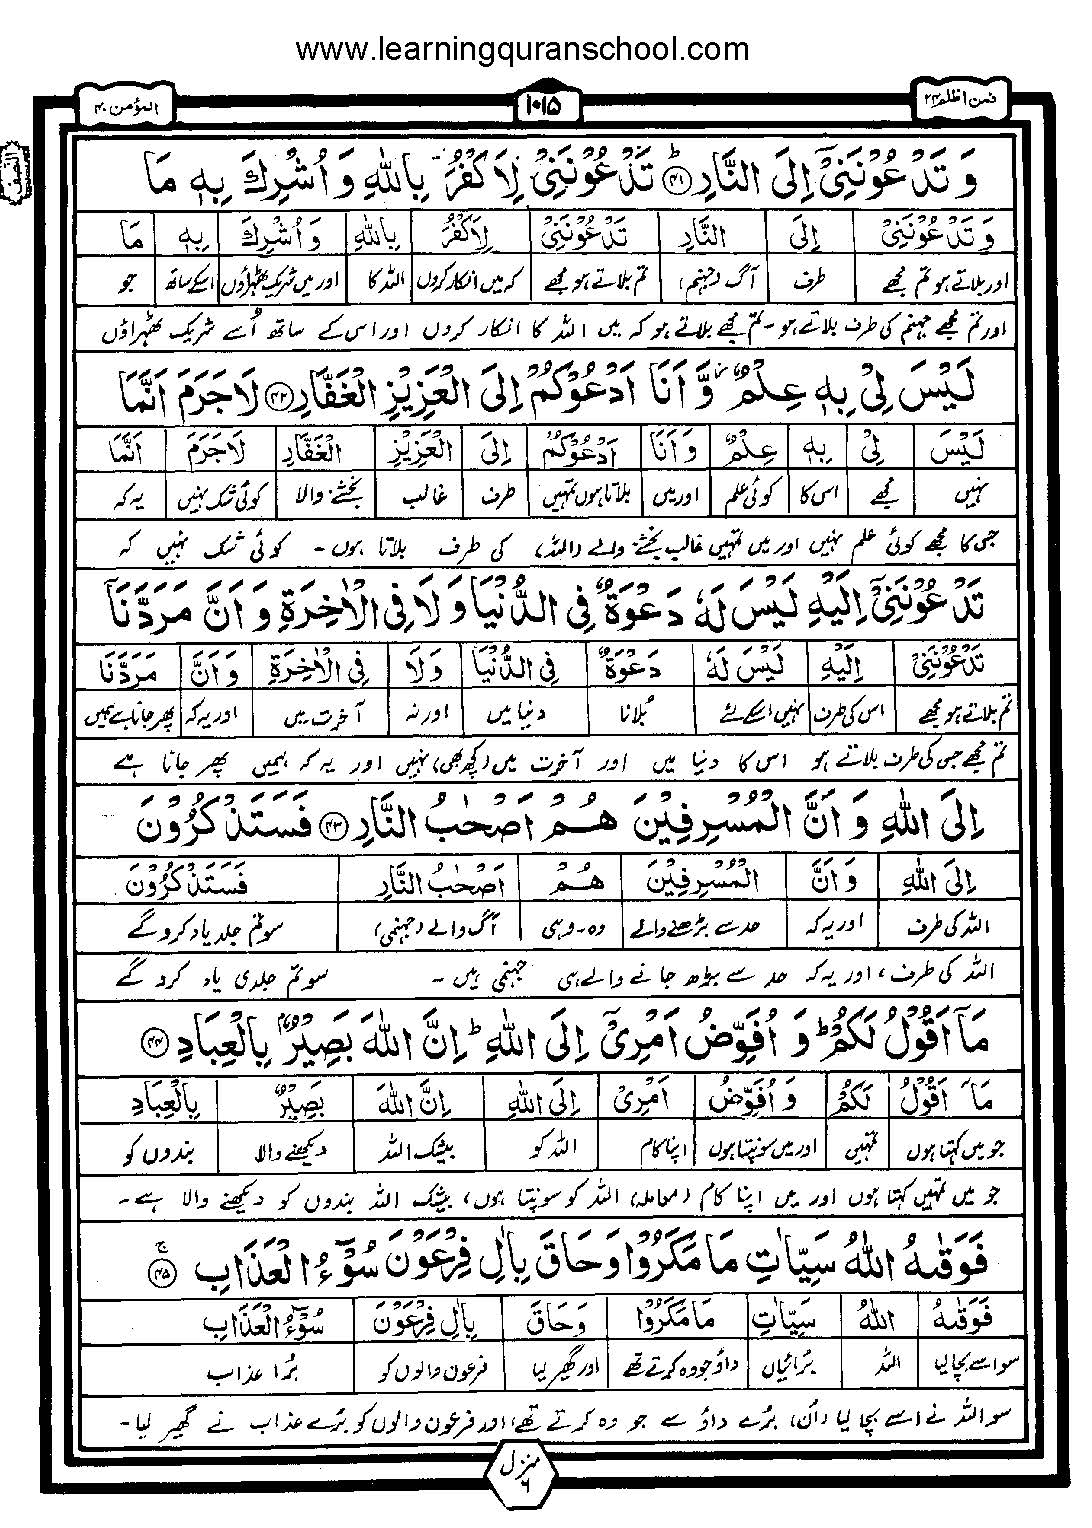 www.learningquranschool.com
فمن اظلم ٢٤
١٠١٥
المؤمن ٤٠
وَ تَدْعُوْنَنِیْۤ اِلَی النَّارِ ﴿۴۱﴾ؕ تَدْعُوْنَنِیْ لِاَكْفُرَ بِاللّٰهِ وَ اُشْرِكَ بِهٖ مَا
وَ تَدْعُوْنَنِیْۤ اِلَی النَّارِ تَدْعُوْنَنِیْ لِاَكْفُرَ بِاللّٰهِ وَ اُشْرِكَ بِهٖ مَا
اور بلاتے ہو تم مجھے طرف آگ (جہنم) تم بلاتے ہو مجھے کہ میں انکار کروں اللہ کا اور میں شریک ٹھہراؤں اسکے ساتھ جو
اور تم مجھے جہنم کی طرف بلاتے ہو۔ تم مجھے بلاتے ہو کہ میں اللہ کا انکار کروں اور اس کے ساتھ اُسے شریک ٹھہراؤں
لَیْسَ لِیْ بِهٖ عِلْمٌ ؗ وَّ اَنَا اَدْعُوْكُمْ اِلَی الْعَزِیْزِ الْغَفَّارِ ﴿۴۲﴾ لَا جَرَمَ اَنَّمَا
لَیْسَ لِیْ بِهٖ عِلْمٌ وَ اَنَا اَدْعُوْكُمْ اِلَی الْعَزِیْزِ الْغَفَّارِ لَا جَرَمَ اَنَّمَا
نہیں مجھے اس کا کوئی علم اور میں بلاتا ہوں تمہیں طرف غالب بخشنے والا کوئی شک نہیں یہ کہ
جس کا مجھے کوئی علم نہیں اور میں تمہیں غالب بخشنے والے (اللہ) کی طرف بلاتا ہوں۔ کوئی شک نہیں کہ
تَدْعُوْنَنِیْۤ اِلَیْهِ لَیْسَ لَهٗ دَعْوَةٌ فِی الدُّنْیَا وَ لَا فِی الْاٰخِرَةِ وَ اَنَّ مَرَدَّنَاۤ
تَدْعُوْنَنِیْۤ اِلَیْهِ لَیْسَ لَهٗ دَعْوَةٌ فِی الدُّنْیَا وَ لَا فِی الْاٰخِرَةِ وَ اَنَّ مَرَدَّنَا
تم بلاتے ہو مجھے اس کی طرف نہیں اسکے لئے بُلانا دنیا میں اور نہ آخرت میں اور یہ کہ پھر جانا ہے ہمیں
تم مجھے جس کی طرف بلاتے ہو اس کا دنیا میں اور آخرت میں (کچھ بھی) نہیں اور یہ کہ ہمیں پھر جانا ہے
اِلَی اللّٰهِ وَ اَنَّ الْمُسْرِفِیْنَ هُمْ اَصْحٰبُ النَّارِ ﴿۴۳﴾ فَسَتَذْكُرُوْنَ
اِلَی اللّٰهِ وَ اَنَّ الْمُسْرِفِیْنَ هُمْ اَصْحٰبُ النَّارِ فَسَتَذْكُرُوْنَ
اللہ کی طرف اور یہ کہ حد سے بڑھنے والے وہ۔ وہی آگ والے (جہنمی) سو تم جلد یاد کرو گے
اللہ کی طرف، اور یہ کہ حد سے بڑھ جانے والے ہی جہنمی ہیں۔ سو تم جلدی یاد کرو گے
مَاۤ اَقُوْلُ لَكُمْ ؕ وَ اُفَوِّضُ اَمْرِیْۤ اِلَی اللّٰهِ ؕ اِنَّ اللّٰهَ بَصِیْرٌۢ بِالْعِبَادِ ﴿۴۴﴾
مَاۤ اَقُوْلُ لَكُمْ وَ اُفَوِّضُ اَمْرِیْۤ اِلَی اللّٰهِ اِنَّ اللّٰهَ بَصِیْرٌ بِالْعِبَادِ
جو میں کہتا ہوں تمہیں اور میں سونپتا ہوں اپنا کام اللہ کو بیشک اللہ دیکھنے والا بندوں کو
جو میں تمہیں کہتا ہوں اور میں اپنا کام (معاملہ) اللہ کو سونپتا ہوں، بیشک اللہ بندوں کو دیکھنے والا ہے۔
فَوَقٰىهُ اللّٰهُ سَیِّاٰتِ مَا مَكَرُوْا وَ حَاقَ بِاٰلِ فِرْعَوْنَ سُوْٓءُ الْعَذَابِ ﴿۴۵﴾ۚ
فَوَقٰىهُ اللّٰهُ سَیِّاٰتِ مَا مَكَرُوْا وَ حَاقَ بِاٰلِ فِرْعَوْنَ سُوْٓءُ الْعَذَابِ
سو اسے بچا لیا اللہ بُرائیاں داؤ جو وہ کرتے تھے اور گھیر لیا فرعون والوں کو بُرا عذاب
سو اللہ نے اسے بچا لیا (اُن) بُرے داؤ سے جو وہ کرتے تھے، اور فرعون والوں کو بُرے عذاب نے گھیر لیا۔
منزل ٦